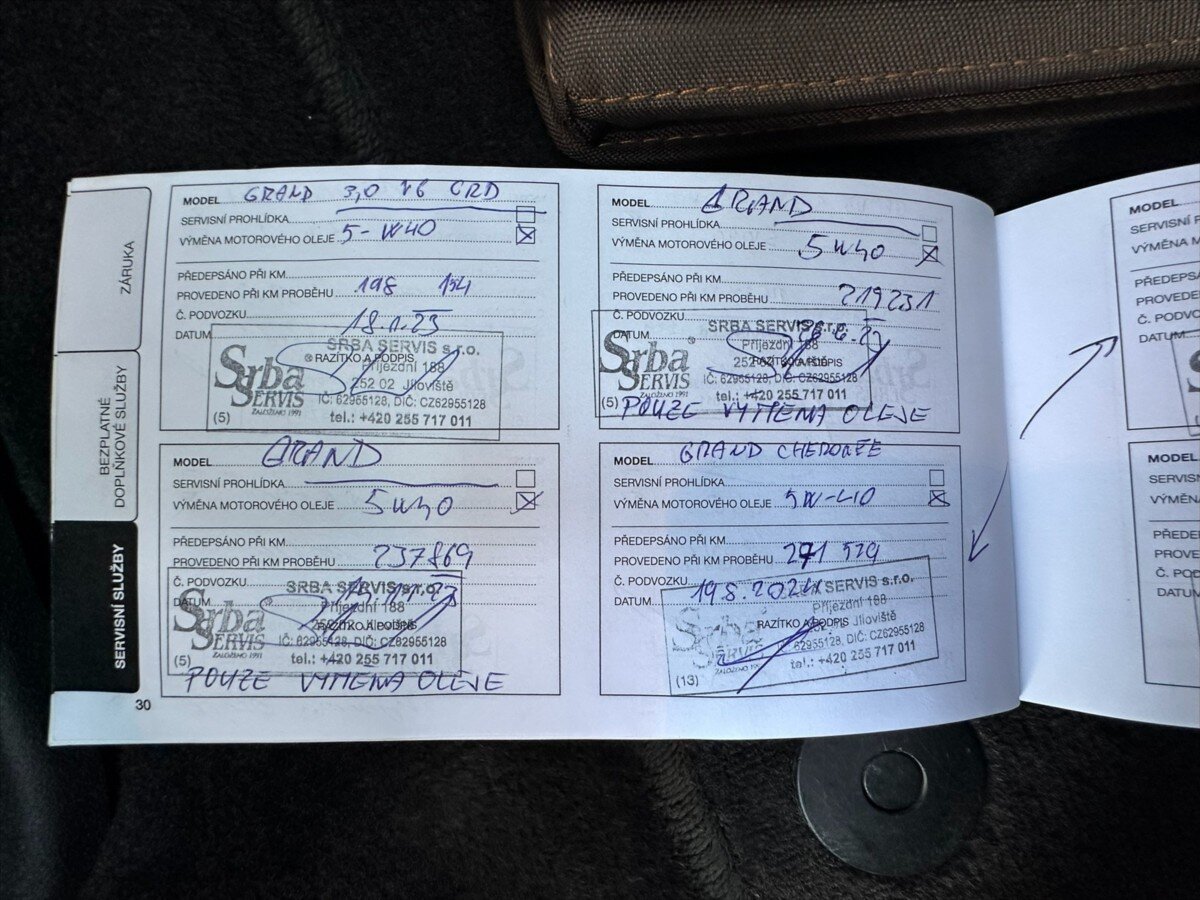 ZÁRUKA
BEZPLATNÉ
DOPLŇKOVÉ SLUŽBY
SERVISNÍ SLUŽBY
MODEL GRAND 3,0 V6 CRD
SERVISNÍ PROHLÍDKA
VÝMĚNA MOTOROVÉHO OLEJE 5-W40
PŘEDEPSÁNO PŘI KM
PROVEDENO PŘI KM PROBĚHU 198 154
Č. PODVOZKU
DATUM 18.1.23
SRBA SERVIS s.r.o.
RAZÍTKO A PODPIS
Příjezdní 188
252 02 Jíloviště
IČ: 62955128, DIČ: CZ62955128
tel.: +420 255 717 011
Srba
SERVIS
ZALOŽENO 1991
(5)
MODEL GRAND
SERVISNÍ PROHLÍDKA
VÝMĚNA MOTOROVÉHO OLEJE 5W40
PŘEDEPSÁNO PŘI KM
PROVEDENO PŘI KM PROBĚHU 219231
Č. PODVOZKU
DATUM
SRBA SERVIS s.r.o.
Příjezdní 188
RAZÍTKO A PODPIS
IČ: 62955128, DIČ: CZ62955128
tel.: +420 255 717 011
Srba
SERVIS
ZALOŽENO 1991
(5) POUZE VÝMĚNA OLEJE
MODEL GRAND
SERVISNÍ PROHLÍDKA
VÝMĚNA MOTOROVÉHO OLEJE 5W40
PŘEDEPSÁNO PŘI KM
PROVEDENO PŘI KM PROBĚHU 237869
Č. PODVOZKU
DATUM
SRBA SERVIS s.r.o.
Příjezdní 188
RAZÍTKO A PODPIS
IČ: 62955128, DIČ: CZ62955128
tel.: +420 255 717 011
Srba
SERVIS
ZALOŽENO 1991
(5)
POUZE VÝMĚNA OLEJE
MODEL GRAND CHEROKEE
SERVISNÍ PROHLÍDKA
VÝMĚNA MOTOROVÉHO OLEJE 5W-40
PŘEDEPSÁNO PŘI KM
PROVEDENO PŘI KM PROBĚHU 271 529
Č. PODVOZKU
DATUM 19.8.2024
SERVIS s.r.o.
Příjezdní 188
RAZÍTKO A PODPIS Jíloviště
62955128, DIČ: CZ62955128
tel.: +420 255 717 011
Srba
SERVIS
ZALOŽENO 1991
(13)
30
MODEL
SERVISNÍ
VÝMĚNA M
PŘEDEPSÁ
PROVEDEN
Č. PODVO
DATUM
MODEL
SERVISNÍ
VÝMĚNA
PŘEDE
PROVE
Č. POD
DATUM